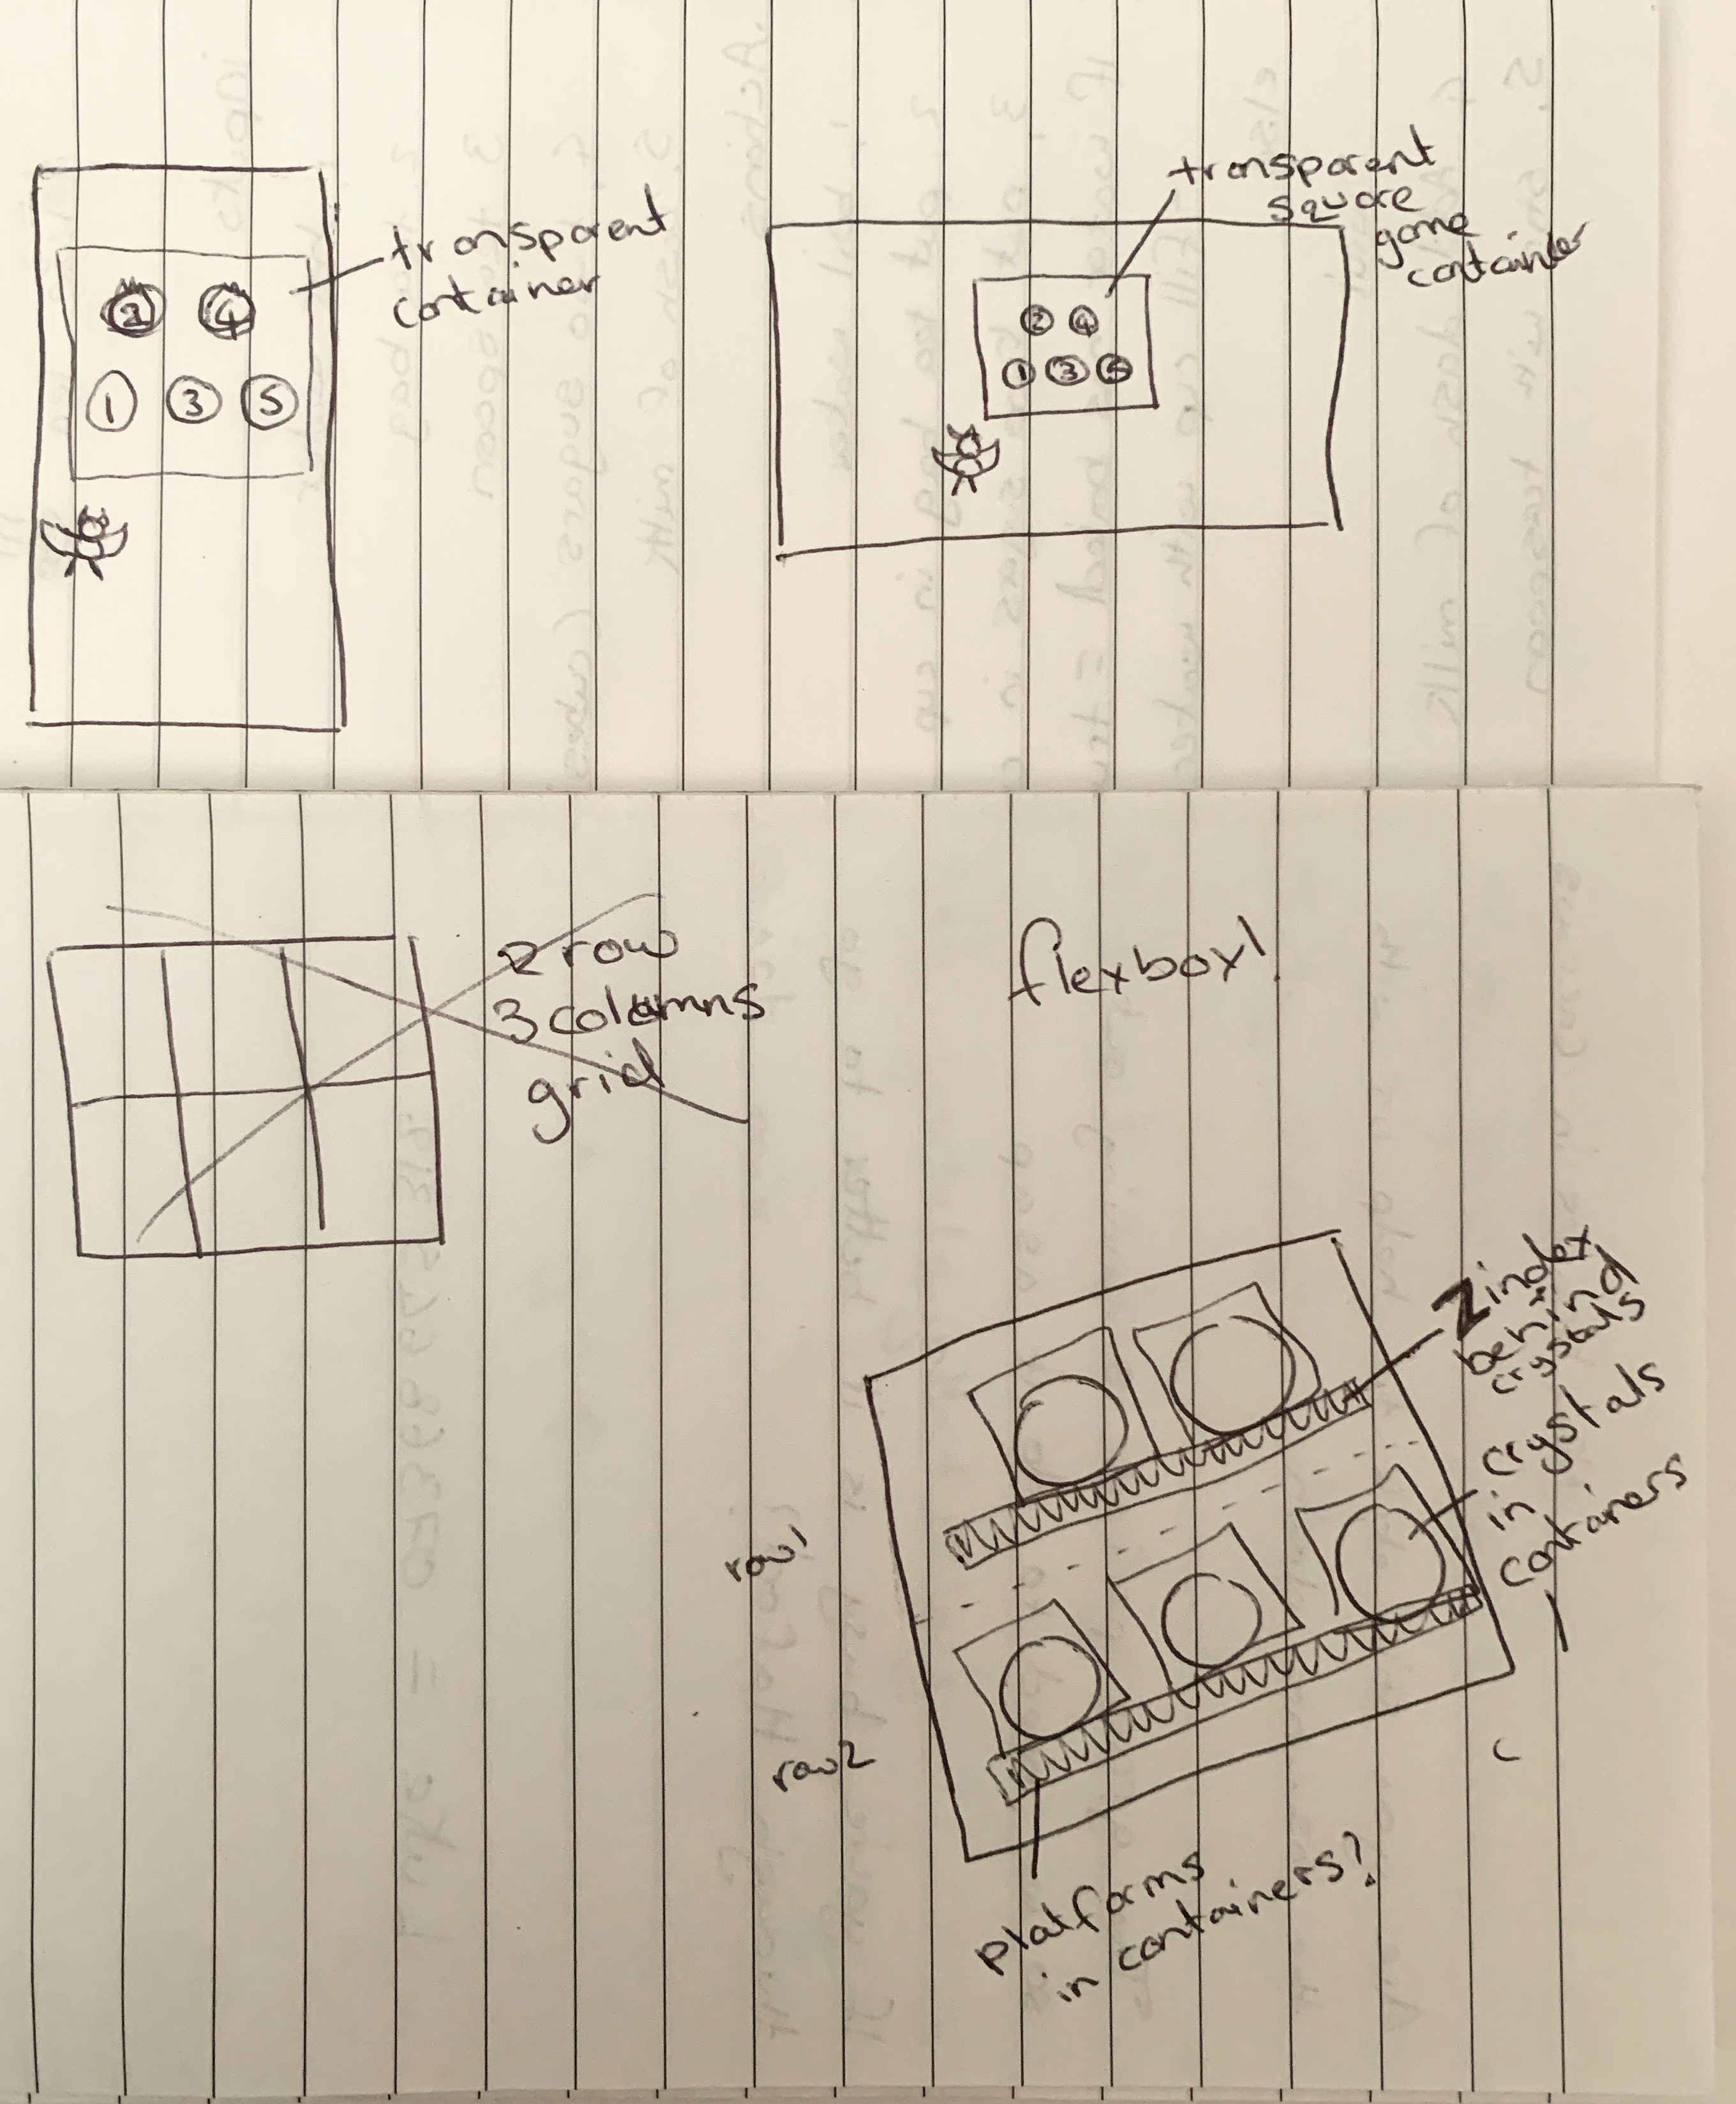 transparent
container
2 4
1 3 5
transparent
square
game
container
2 4
1 3 5
2 row
3 columns
grid
flexbox!
Z index
behind
crystals
crystals
in
containers
row1
row2
platforms
in containers?